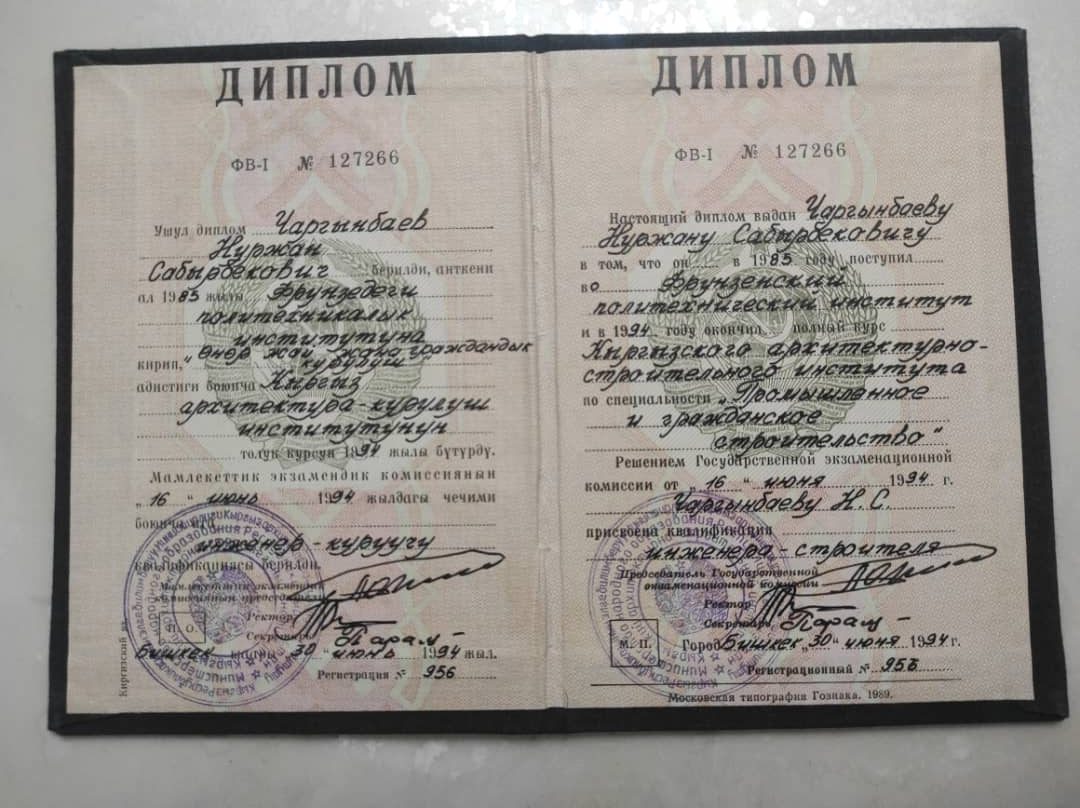 ДИПЛОМ
ФВ-I № 127266
Ушул диплом Чаргынбаев
Нуржан
Сабырбекович берилди, анткени
ал 1985 жылы Фрунзедеги
политехникалык
институтуна
кирип, „Өнөр жай жана граждандык
курулуш
адистиги боюнча Кыргыз
архитектура-курулуш
институтунун
толук курсун 1994 жылы бүтүрдү.
Мамлекеттик экзамендик комиссиянын
„16“ июнь 1994 жылдагы чечими
боюнча ага
инженер-куруучу
квалификациясы берилди.
Мамлекеттик экзамендик
комиссиянын председатели
Ректор
Секретарь
П. О.
Бишкек шаары 30 „июнь 1994 жыл.
Регистрация № 956
ДИПЛОМ
ФВ-I № 127266
Настоящий диплом выдан Чаргынбаеву
Нуржану Сабырбековичу
в том, что он в 1985 году поступил
во Фрунзенский
политехнический институт
и в 1994 году окончил полный курс
Кыргызского архитектурно-
строительного института
по специальности „Промышленное
и гражданское
строительство“
Решением Государственной экзаменационной
комиссии от „16“ июня 1994 г.
Чаргынбаеву Н.С.
присвоена квалификация
инженера-строителя
Председатель Государственной
экзаменационной комиссии
Ректор
Секретарь
М. П.
Город Бишкек „30“ июня 1994 г.
Регистрационный № 956
Московская типография Гознака. 1989.